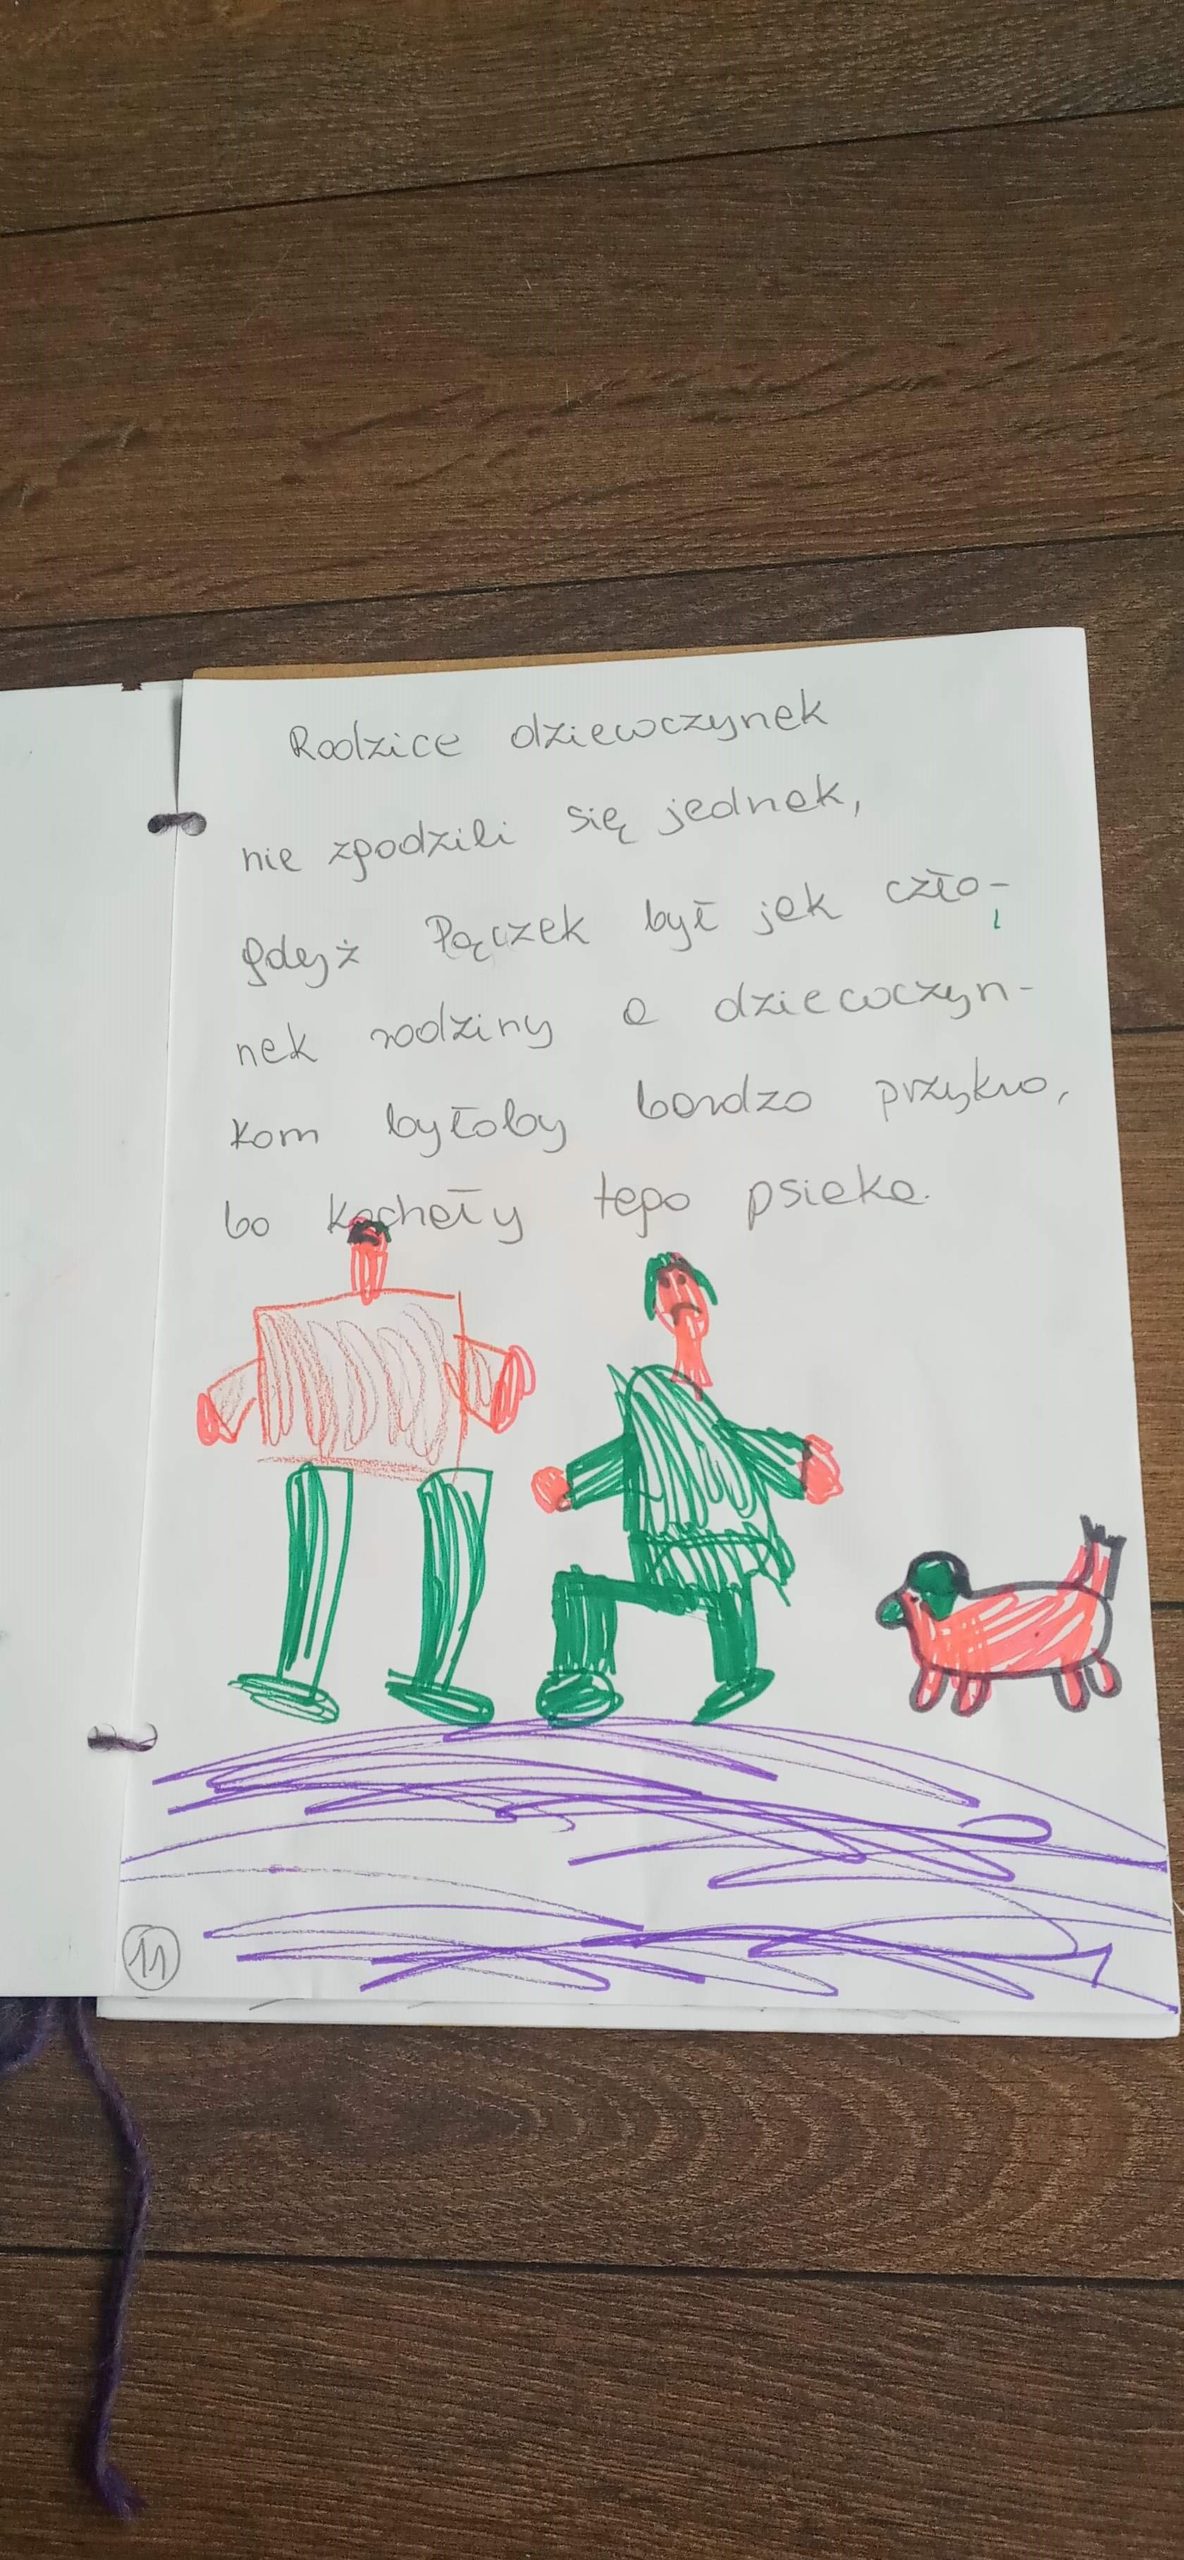 Rodzice dziewczynek
nie zgodzili się jednak,
gdyż Pączek był jak czło-
nek rodziny a dziewczyn-
kom byłoby bardzo przykro,
bo kochały tego psiaka.
11